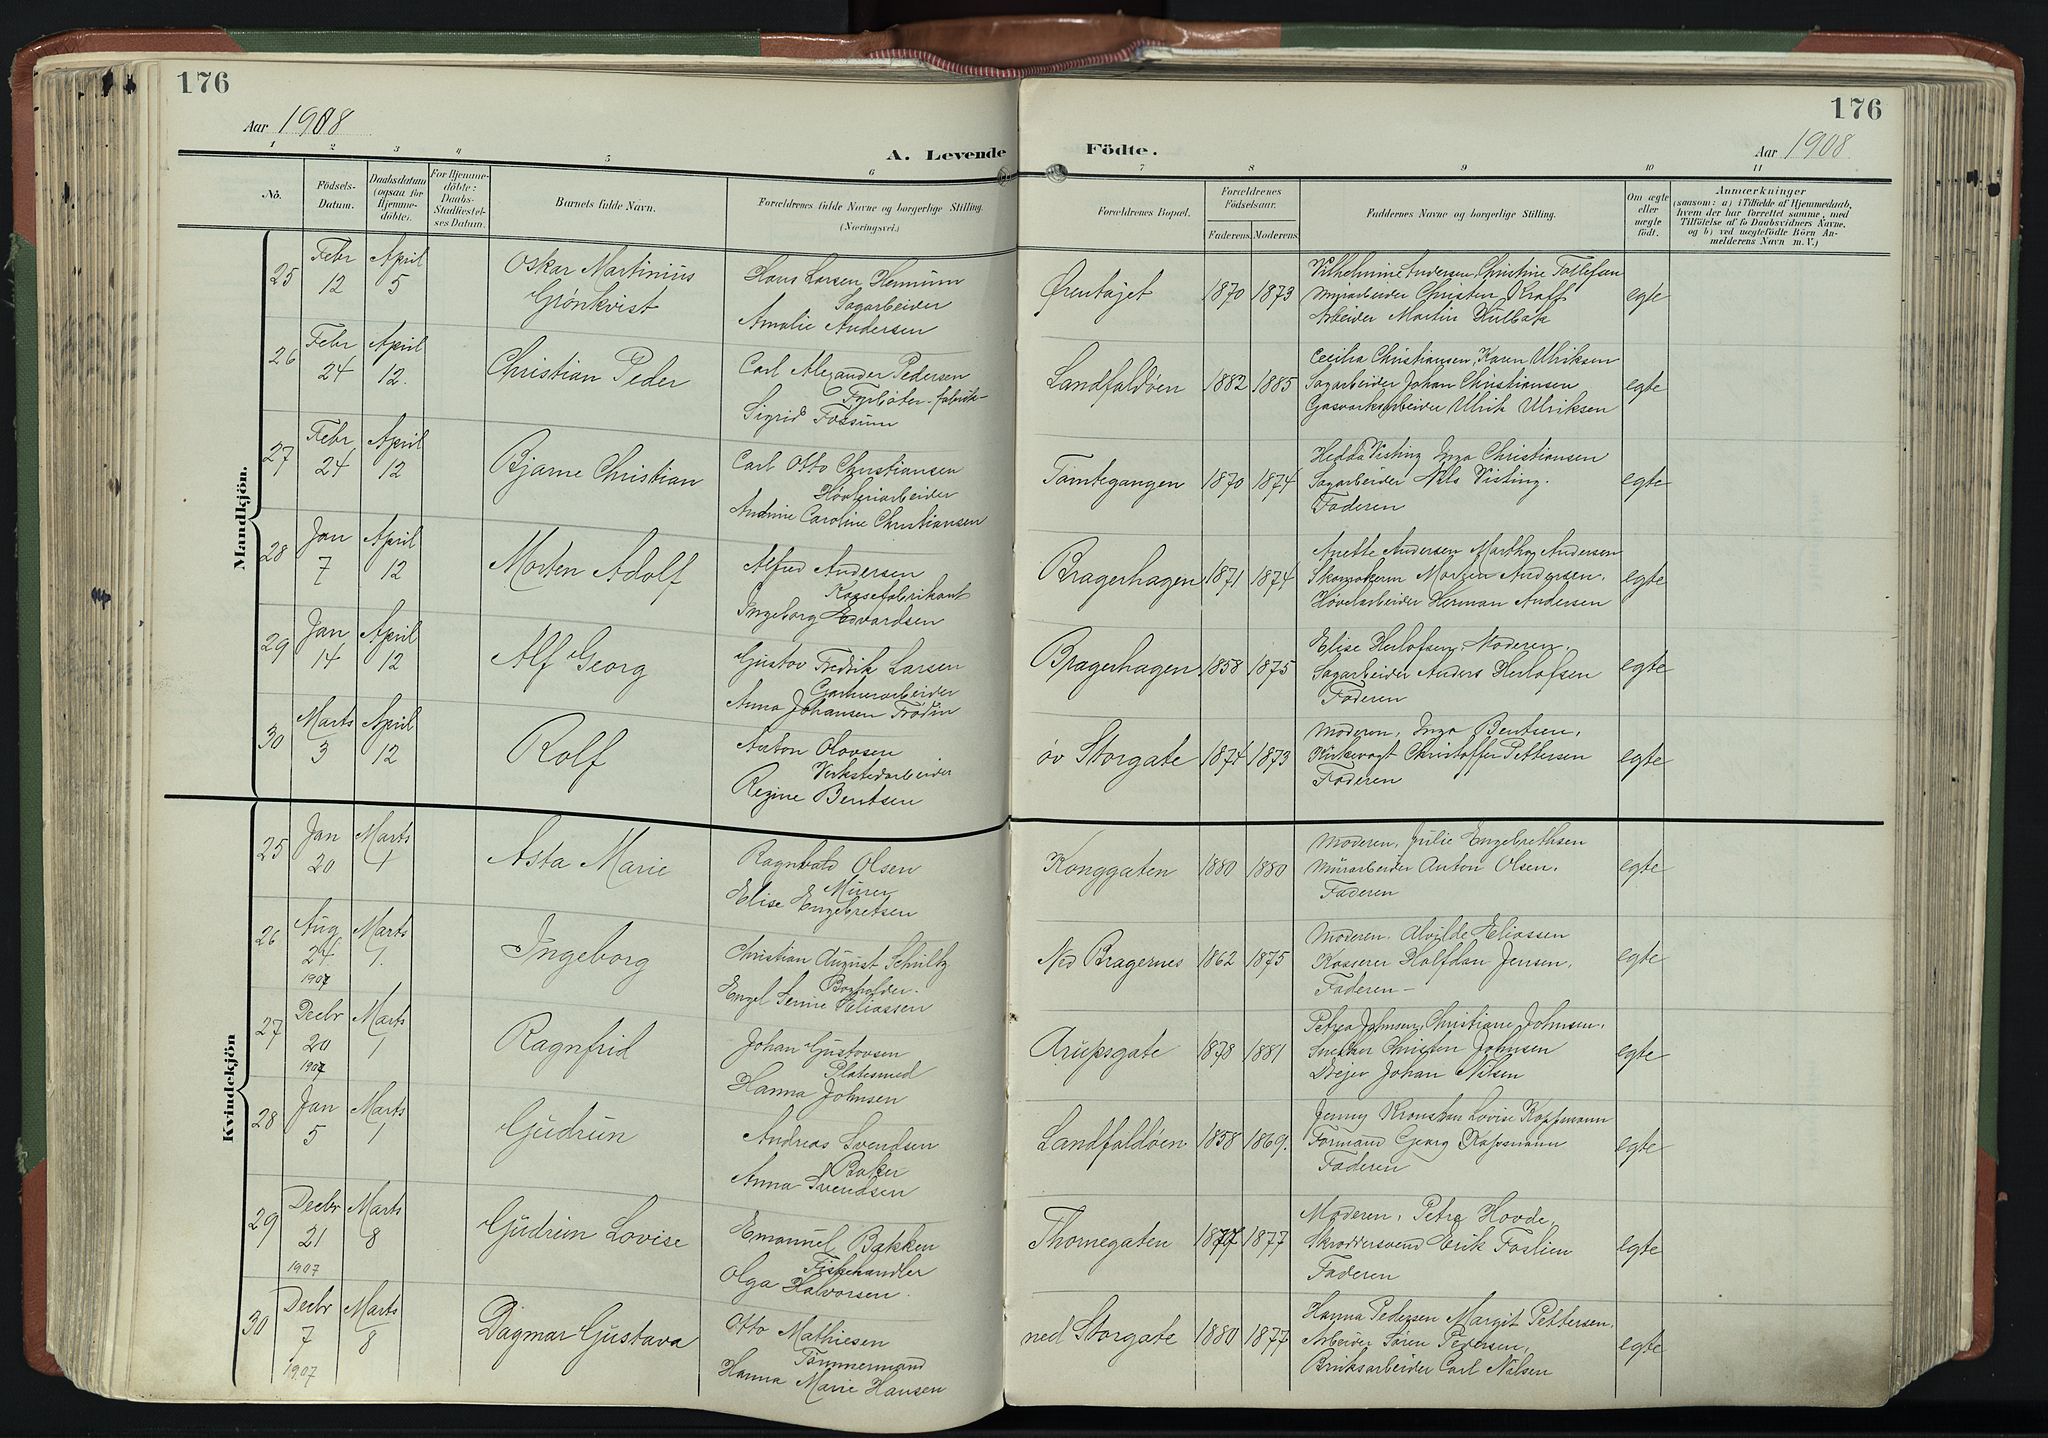 176
176
Aar 1908
Aar 1908
A. Levende Födte.
1 2 3 4 5 6 7 8 9 10 11
No.
Födsels-
Datum.
Daabsdatum
(ogsaa for
Hjemme-
döbte).
For Hjemme-
döbte:
Daabs-
Stadfæstel-
ses Datum.
Barnets fulde Navn.
Forældrenes fulde Navne og borgerlige Stilling.
(Næringsvei.)
Forældrenes Bopæl.
Forældrenes
Födselsaar.
Faderens. Moderens.
Faddernes Navne og borgerlige Stilling.
Om ægte
eller
uægte
födt.
Anmærkninger
(saasom: a) i Tilfælde af Hjemmedaab,
hvem der har forrettet samme, med
Tilföielse af to Daabsvidners Navne,
og b) ved uægtefödte Börn An-
melderens Navn m. V.)
Mandkjön.
25 Febr 12 April 5
Oskar Martinius
Grönkvist
Hans Larsen Hermum
Sagarbeider
Amalie Andersen
Ørentajet 1870 1873
Vilhelmine Andersen, Christine Tollefsen
Murarbeider Christen Kraft
Arbeider Martin Hulbak
egte
26 Febr 24 April 12.
Christian Peder
Carl Alexander Pedersen
Fyrböter-fabrik-
Sigrid Fossum
Landfaldöen 1882 1885
Cecilia Christiansen, Karen Ulriksen
Sagarbeider Johan Christiansen
Gasværksarbeider Ulrik Ulriksen
egte
27 Febr 24 April 12
Bjarne Christian
Carl Otto Christiansen
Høvleriarbeider
Andrine Caroline Christiansen
Tomtegangen 1870 1874
Hedda Visting Inga Christiansen
Sagarbeider Nils Visting.
Faderen
egte
28 Jan 7 April 12
Morten Adolf
Alfred Andersen
Kassefabrikant
Ingeborg Edvardsen
Bragerhagen 1871 1874
Anette Andersen Martha Andersen
Skomakerm Morten Andersen.
Høvelarbeider Herman Andersen
egte
29 Jan 14 April 12
Alf Georg
Gustav Fredrik Larsen
Garverarbeider
Anna Johansen Frödin
Bragerhagen 1858 1875
Elise Herlofsen, Moderen.
Sagarbeider Anders Herlofsen
Faderen
egte
30 Marts 3 April 12
Rolf
Anton Olavsen
Verkstedarbeider
Regine Bentsen
öv Storgate 1874 1873
Moderen, Inga Bentsen,
Kirkevagt Christoffer Pettersen
Faderen
egte
Kvindekjön
25 Jan 20 Marts 1
Asta Marie
Ragnvald Olsen
Murer
Elise Engebretsen
Konggaten 1880 1880
Moderen, Julie Engebrethsen
Murarbeider Anton Olsen.
Faderen
egte
26 Aug 24 1907 Marts 1.
Ingeborg
Christian August Schultz
Bogholder.
Engel Serine Eliassen
Ned Bragernes 1862 1875
Moderen, Alvilde Eliassen
Kasserer Halfdan Jensen,
Faderen -
egte
27 Decbr 20 1907 Marts 1
Ragnfrid
Johan Gustavsen
Platesmed
Hanna Johnsen
Arupsgate 1878 1881
Petrea Johnsen, Christiane Johnsen.
Snekker Christen Johnsen
Dreier Johan Nilsen
egte
28 Jan 5 Marts 1
Gudrun
Andreas Svendsen
Baker
Anna Svendsen
Landfaldöen. 1858 1869.
Jenny Lovise Koppmann
Formand Georg Kopsmann
Faderen
egte
29 Decbr 21 1907 Marts 8
Gudrun Lovise
Emanuel Bakken
Fiskehandler
Olga Halvorsen.
Thornegaten 1877 1877
Moderen, Petra Hovde,
Skræddersvend Erik Foslien
Faderen
egte
30 Decbr 7 1907 Marts 8
Dagmar Gustava
Otto Mathiesen
Tømmermand
Hanna Marie Hansen
ned Storgate 1880 1877
Hanna Pedersen Margit Pettersen.
Arbeider Sören Pedersen,
Bruksarbeider Carl Nilsen
egte